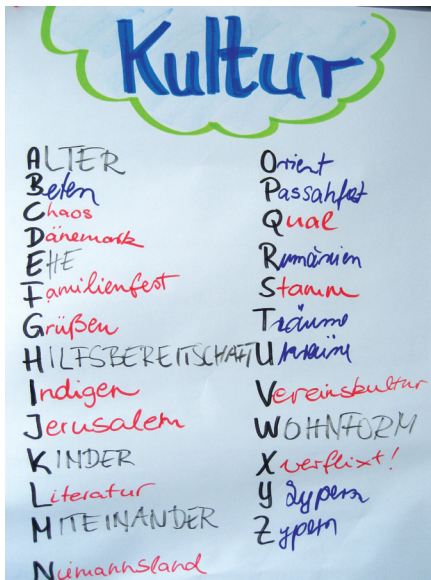 Kultur
ALTER
Beten
Chaos
Dänemark
EHE
Familienfest
Grüßen
HILFSBEREITSCHAFT
Indigen
Jerusalem
KINDER
Literatur
MITEINANDER
Niemannsland
Orient
Passahfest
Qual
Rumänien
Stamm
Träume
Ukraine
Vereinskultur
WOHNFORM
X verflixt!
Y
Zypern